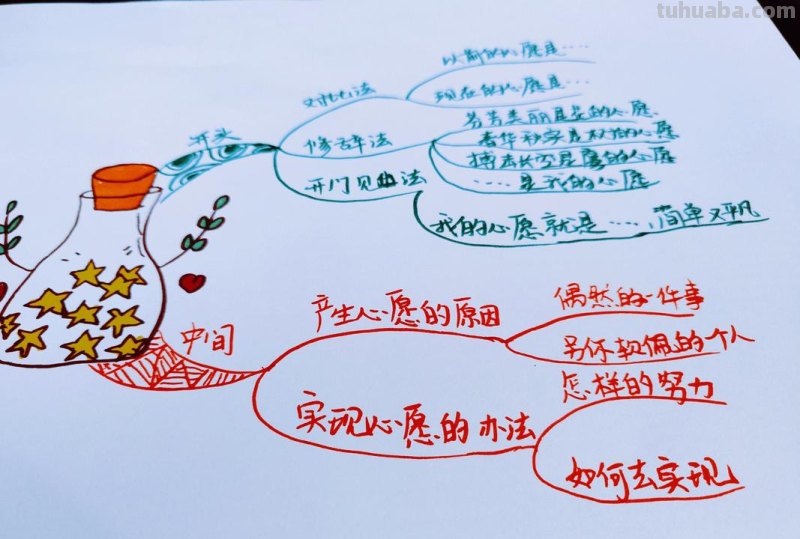 tuhuaba.com
开头
对比法
以前的心愿是……
现在的心愿是…
修辞法
芬芳美丽是花的心愿
春华秋实是
的心愿
搏击长空是鹰的心愿
……是我的心愿
开门见山法
我的心愿就是……,简单又平凡
中间
产生心愿的原因
偶然的一件事
另你敬佩的一个人
实现心愿的办法
怎样的努力
如何去实现